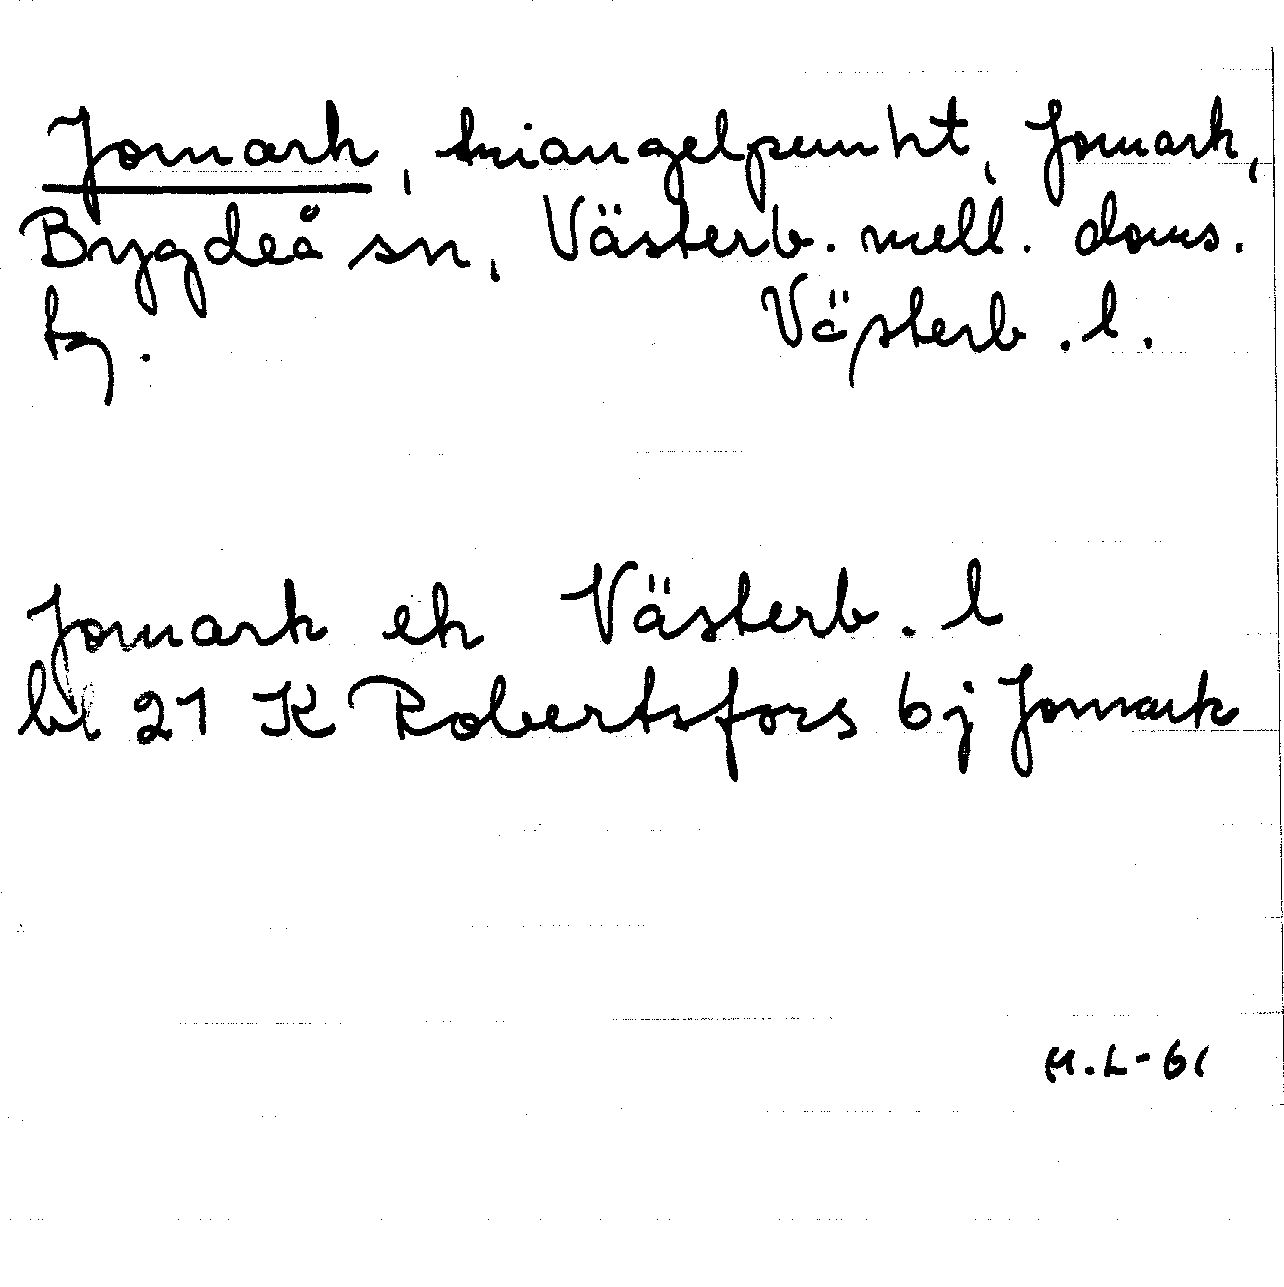 Jomark, triangelpunkt, Jomark,
Bygdeå sn, Västerb. mell. doms.
tg. Västerb. l.
Jomark ek Västerb. l
bl 21 K Robertsfors 6j Jomark
H.L-61